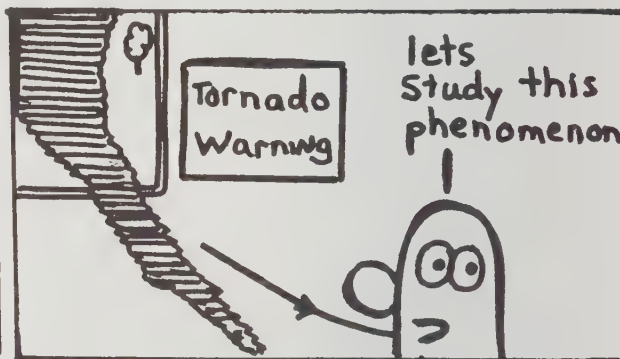 Tornado
Warnwg
lets
Study this
phenomenon